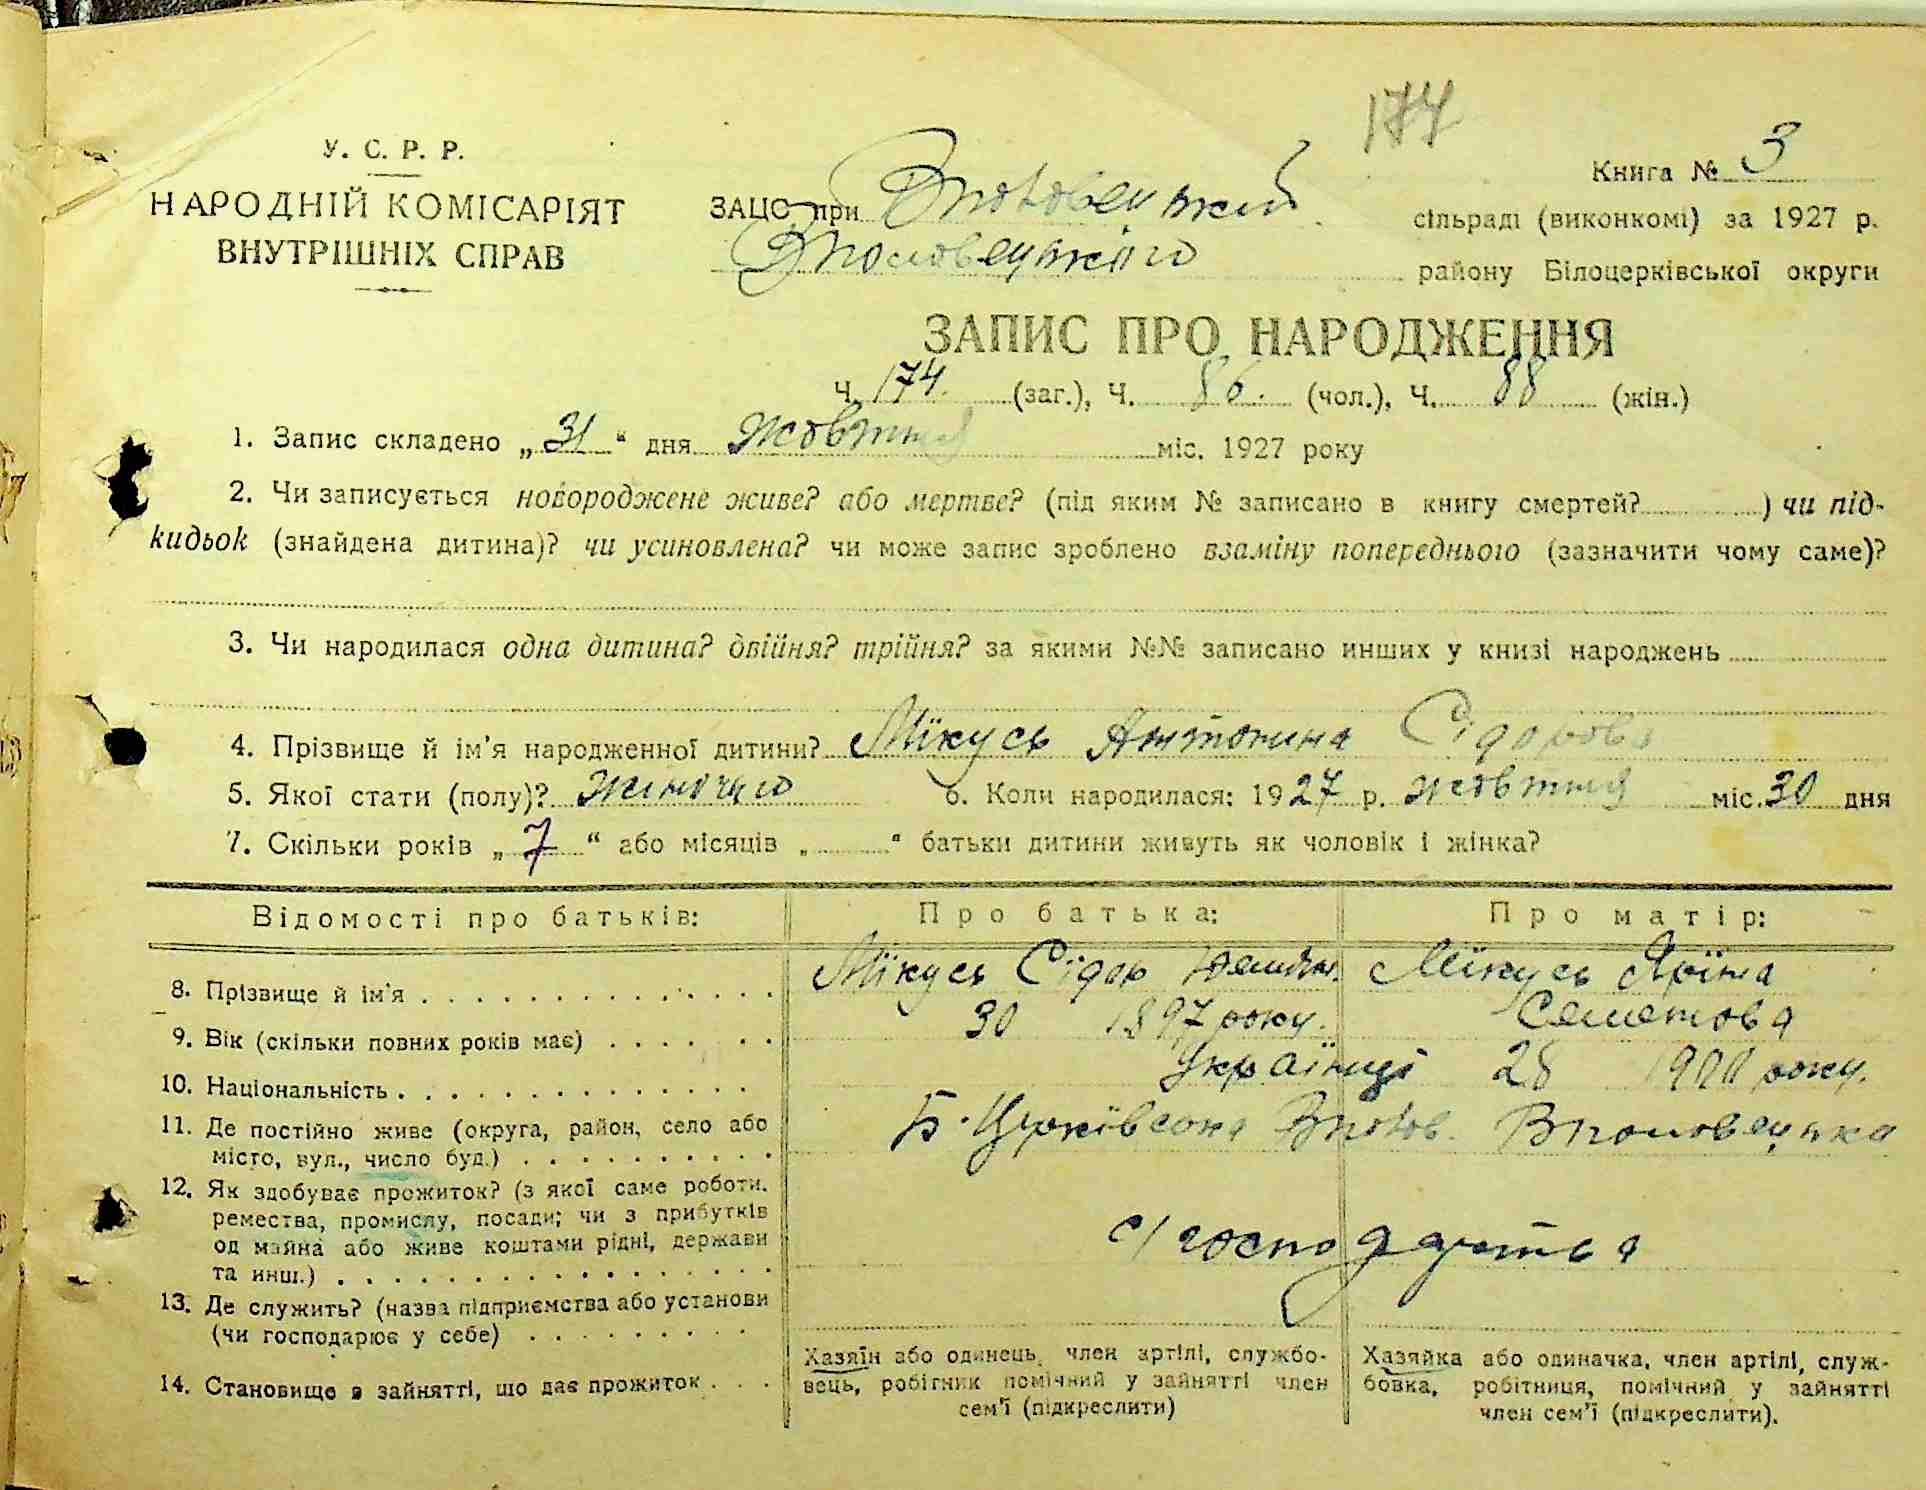 174
У. С. Р. Р.
НАРОДНІЙ КОМІСАРІЯТ
ВНУТРІШНІХ СПРАВ
Книга № 3
ЗАЦС при сільраді (виконкомі) за 1927 р.
району Білоцерківської округи
ЗАПИС ПРО НАРОДЖЕННЯ
Ч. 174. (заг.), Ч. 86. (чол.), Ч. 88 (жін.)
1. Запис складено „31“ дня жовтня міс. 1927 року
2. Чи записується новороджене живе? або мертве? (під яким № записано в книгу смертей? ) чи під-
кидьок (знайдена дитина)? чи усиновлена? чи може запис зроблено взаміну попереднього (зазначити чому саме)?
3. Чи народилася одна дитина? двійня? трійня? за якими №№ записано инших у книзі народжень
4. Прізвище й ім'я народженної дитини? Мікусь Антонина Сідорова
5. Якої стати (полу)? жіночого 6. Коли народилася: 1927 р. жовтня міс. 30 дня
7. Скільки років „7“ або місяців „ “ батьки дитини живуть як чоловік і жінка?
Відомості про батьків: Про батька: Про матір:
8. Прізвище й ім'я Мікусь Сідор Мікусь Яріна
Семенова
9. Вік (скільки повних років має) 30 1897 року. 28 року.
10. Національність Українці
11. Де постійно живе (округа, район, село або
місто, вул., число буд.) Б. Церківська
12. Як здобуває прожиток? (з якої саме роботи.
ремества, промислу, посади; чи з прибутків
од майна або живе коштами рідні, держави
та инш.) с/господарства
13. Де служить? (назва підприємства або установи
(чи господарює у себе)
14. Становище в зайнятті, що дає прожиток
Хазяїн або одинець, член артілі, службо-
вець, робітник помічний у зайнятті член
сем'ї (підкреслити)
Хазяйка або одиначка, член артілі, служ-
бовка, робітниця, помічний у зайнятті
член сем'ї (підкреслити).